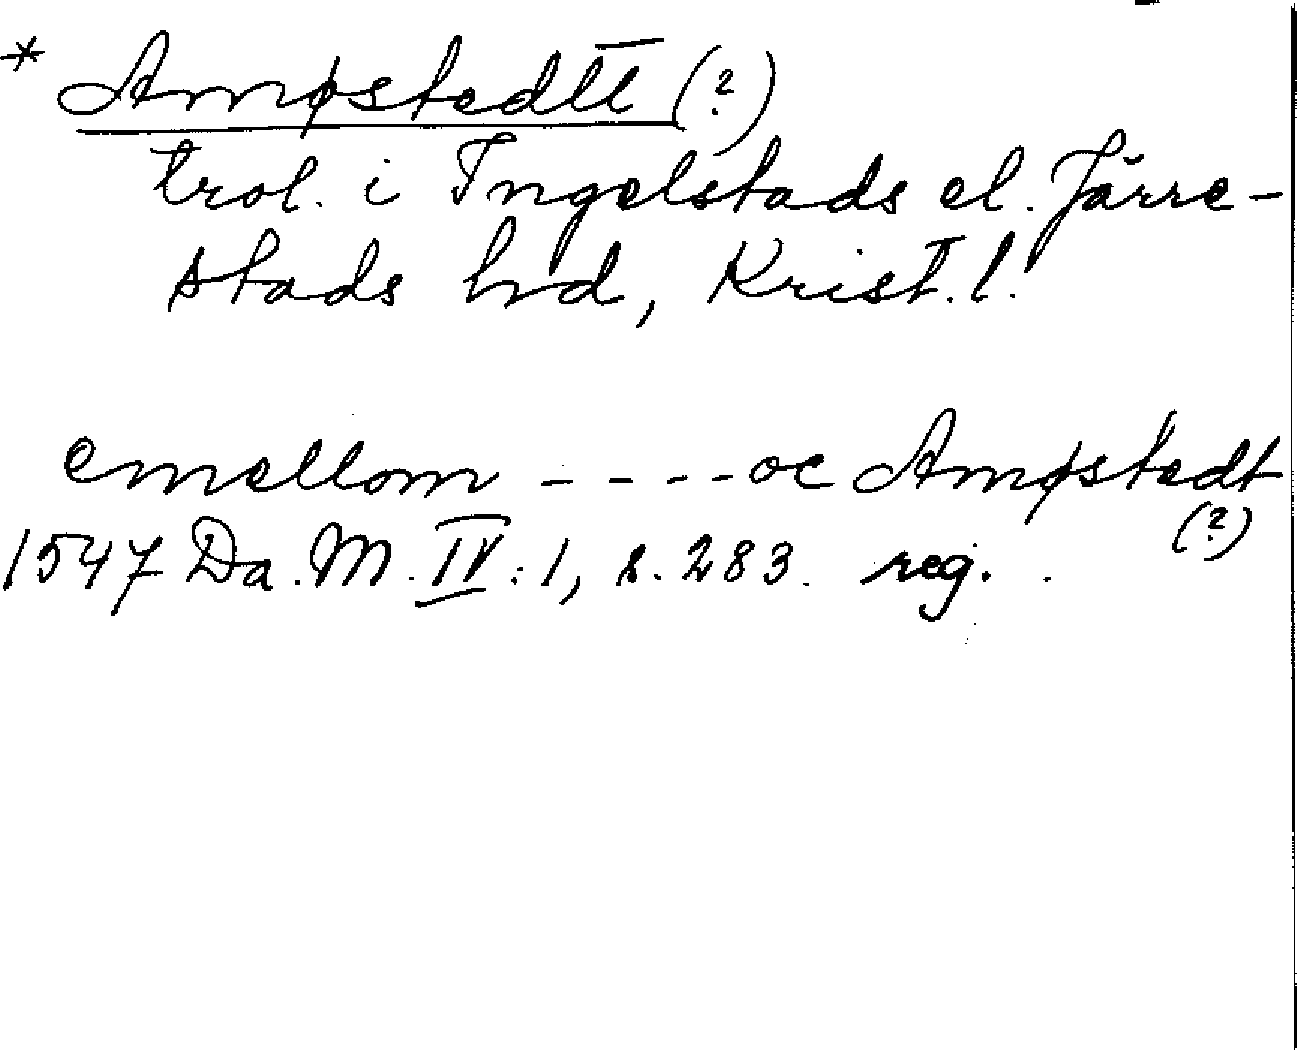 * Ampstedtt (?)
trol. i Ingelstads el. Järre-
stads hrd, Krist. l.
emellom - - - - oc Ampstedt
(?)
1547 Da. M. IV: 1, s. 283. reg.